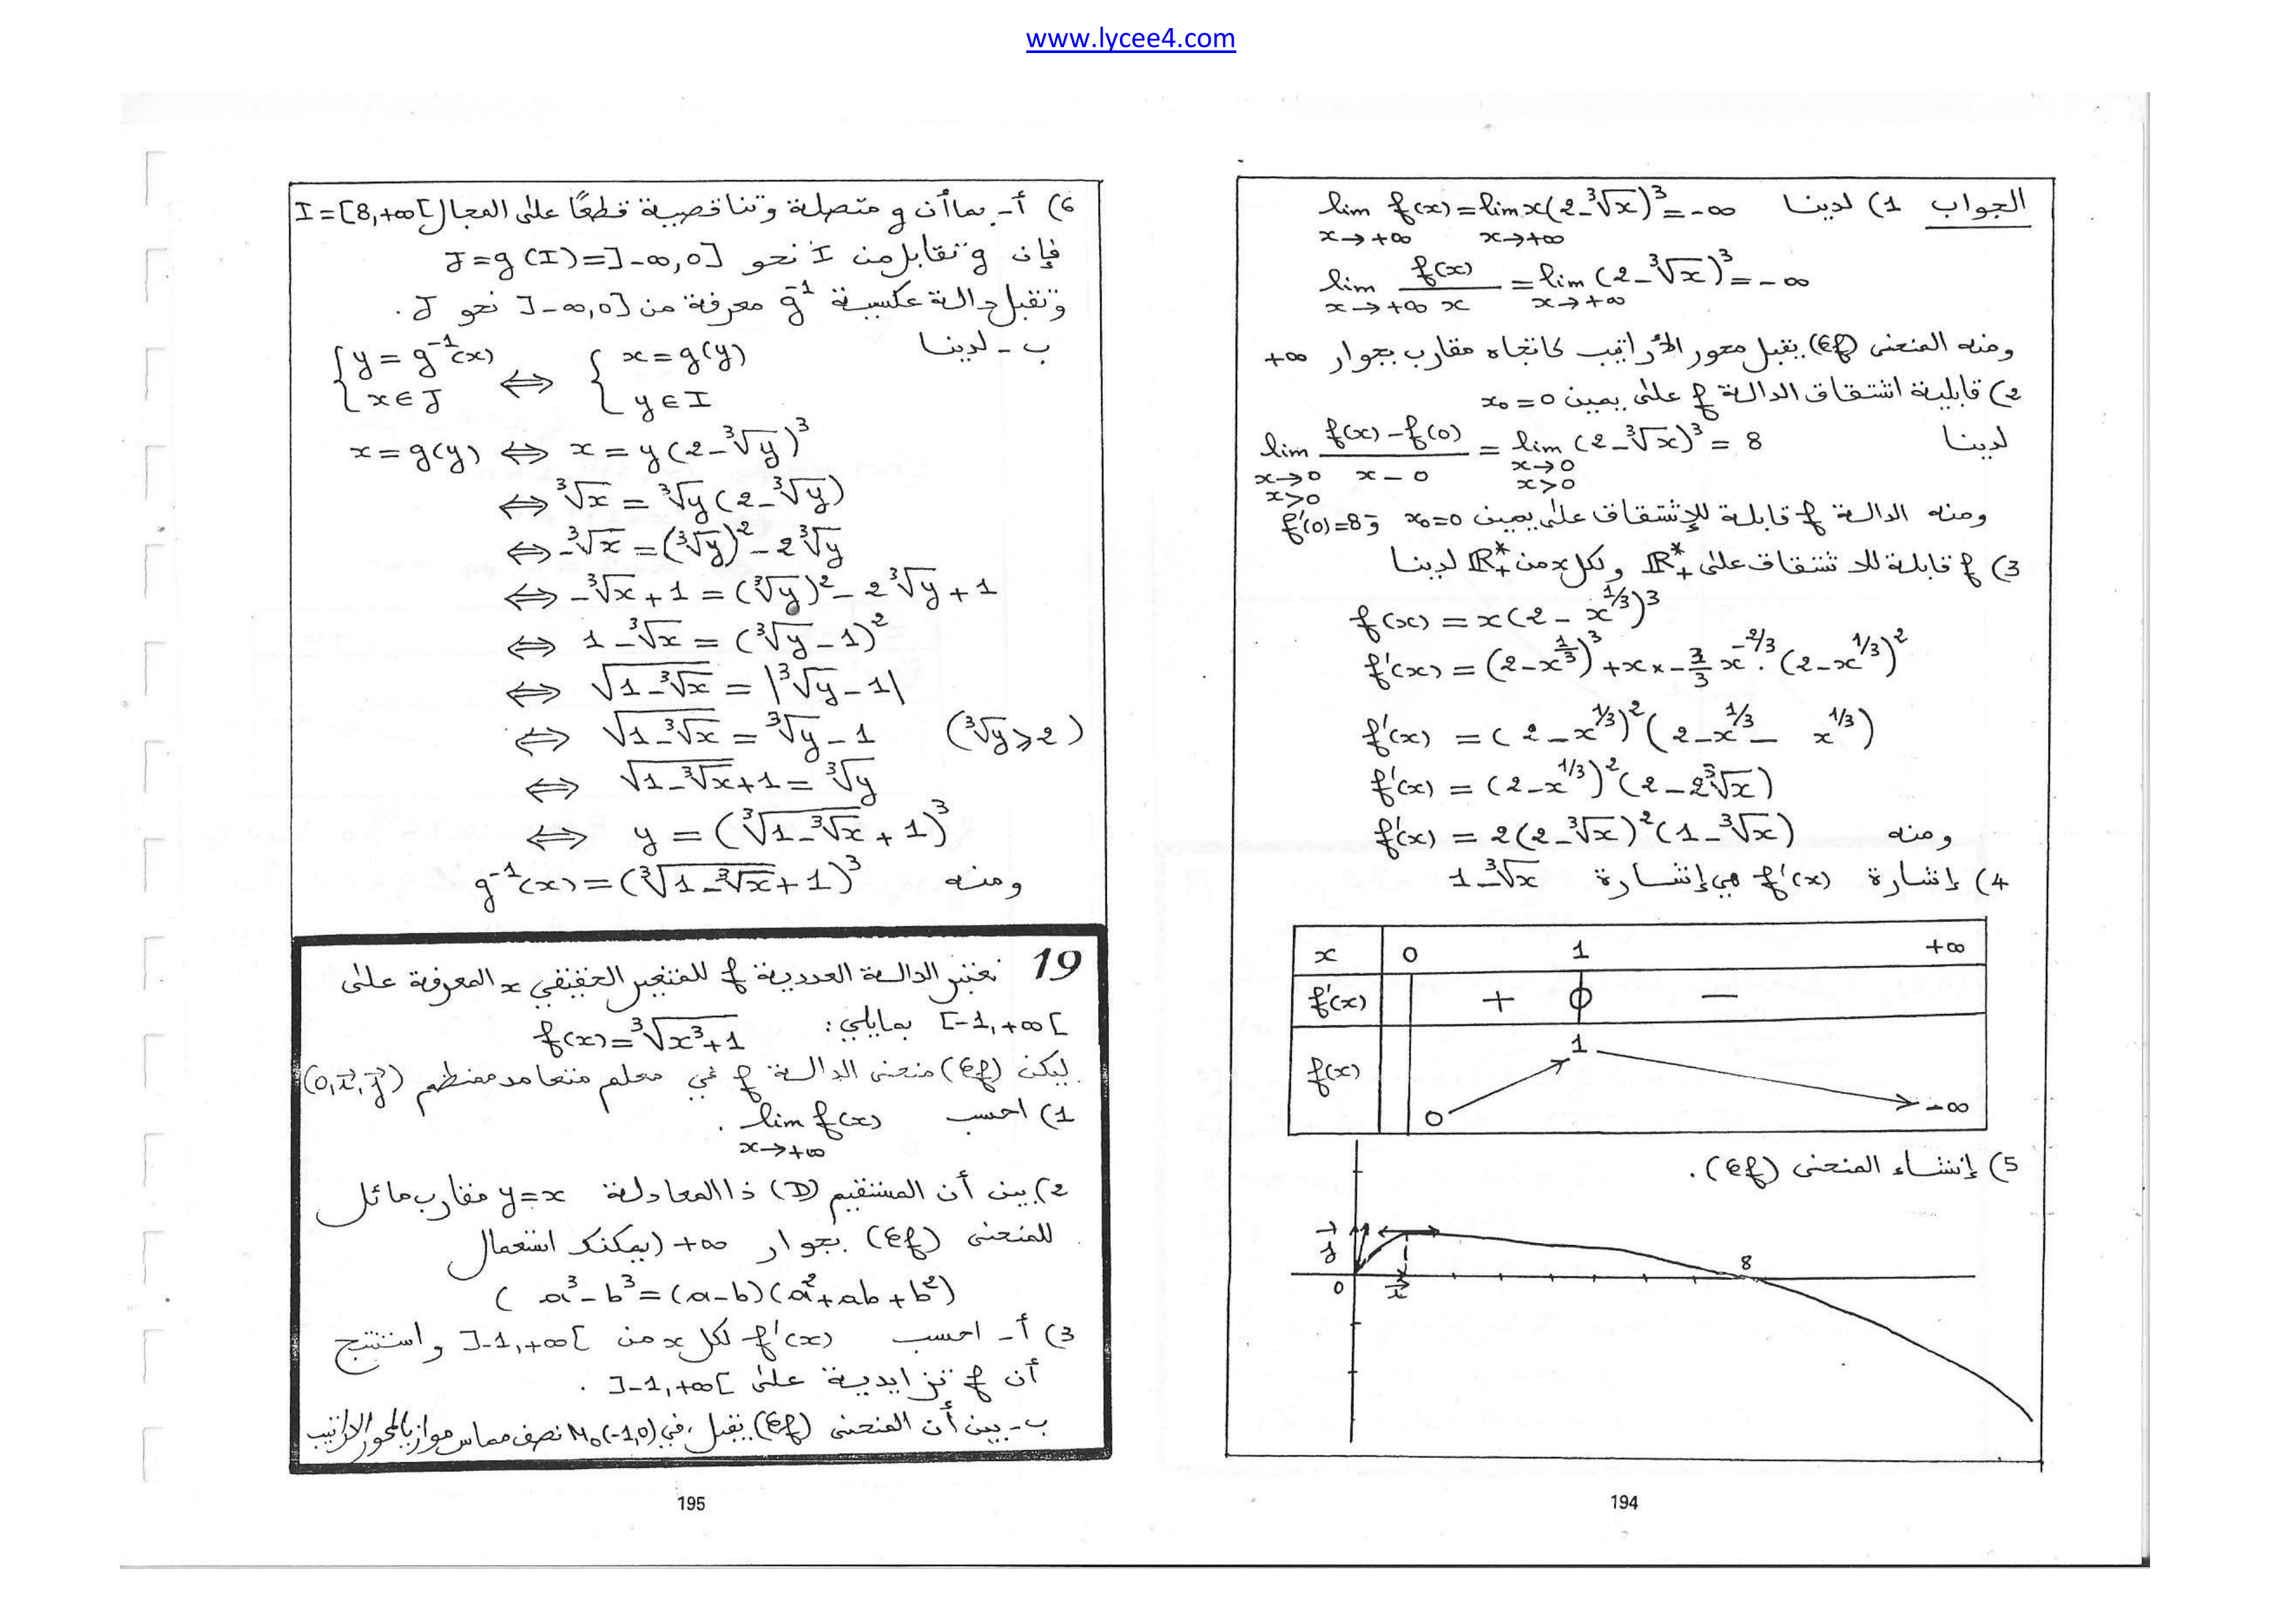 www.lycee4.com
الجواب 1) لدينا lim f(x) = lim x(2-∛x)³ = -∞
x→+∞ x→+∞
lim f(x)/x = lim (2-∛x)³ = -∞
x→+∞ x→+∞
ومنه المنحنى (Cf) يقبل محور الأراتيب كاتجاه مقارب بجوار +∞
2) قابلية اشتقاق الدالة f على يمين x₀=0
لدينا lim (f(x)-f(0))/(x-0) = lim (2-∛x)³ = 8
x→0 x→0
x>0 x>0
ومنه الدالة f قابلة للإشتقاق على يمين x₀=0 و f'(0)=8
3) f قابلة للاشتقاق على ℝ*₊ ولكل x من ℝ*₊ لدينا
f(x) = x(2-x^{1/3})³
f'(x) = (2-x^{1/3})³ + x × -3/3 x^{-2/3}·(2-x^{1/3})²
f'(x) = (2-x^{1/3})²(2-x^{1/3} - x^{1/3})
f'(x) = (2-x^{1/3})²(2-2∛x)
ومنه f'(x) = 2(2-∛x)²(1-∛x)
4) إشارة f'(x) هي إشارة 1-∛x
x 0 1 +∞
f'(x) + 0 -
1
f(x)
0 -∞
5) إنشاء المنحنى (Cf).
j
8
0 i
194
6) أ- بما أن g متصلة وتناقصية قطعًا على المجال I=[8,+∞[
فإن g تقابل من I نحو J=g(I)=]-∞,0]
وتقبل دالة عكسية g⁻¹ معرفة من ]-∞,0] نحو J.
ب- لدينا
{ y = g⁻¹(x) ⇔ { x = g(y)
x∈J y∈I
x = g(y) ⇔ x = y(2-∛y)³
⇔ ∛x = ∛y(2-∛y)
⇔ -∛x = (∛y)² - 2∛y
⇔ -∛x + 1 = (∛y)² - 2∛y + 1
⇔ 1-∛x = (∛y - 1)²
⇔ √(1-∛x) = |∛y - 1|
⇔ √(1-∛x) = ∛y - 1 (∛y ≥ 2)
⇔ √(1-∛x) + 1 = ∛y
⇔ y = (∛(1-∛x) + 1)³
ومنه g⁻¹(x) = (∛(1-∛x) + 1)³
19 نعتبر الدالة العددية f للمتغير الحقيقي x المعرفة على
[-1,+∞[ بمايلي: f(x) = ∛(x³+1)
ليكن (Cf) منحنى الدالة f في معلم متعامد ممنظم (o,i,j)
1) احسب lim f(x).
x→+∞
2) بين أن المستقيم (D) ذا المعادلة y=x مقارب مائل
للمنحنى (Cf) بجوار +∞ (يمكنك استعمال
a³-b³=(a-b)(a²+ab+b²) )
3) أ- احسب f'(x) لكل x من ]-1,+∞[ واستنتج
أن f تزايدية على ]-1,+∞[ .
ب- بين أن المنحنى (Cf) يقبل، في M₀(-1,0) نصف مماس مواز لمحور الاراتيب
195